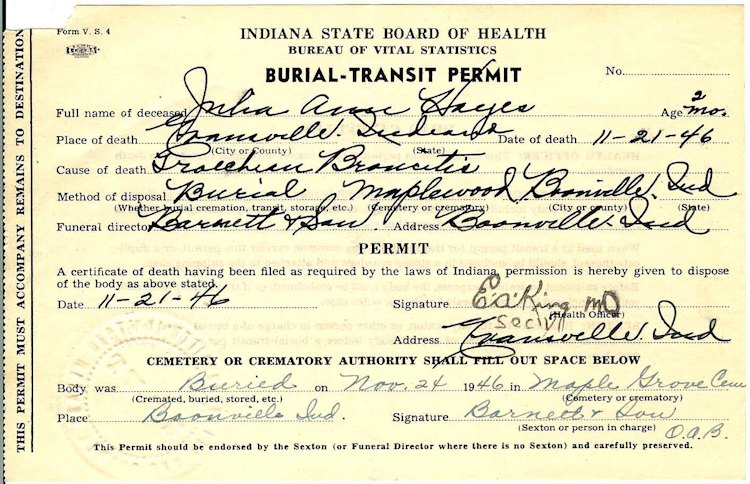 Form V. S. 4
INDIANA STATE BOARD OF HEALTH
BUREAU OF VITAL STATISTICS
BURIAL-TRANSIT PERMIT
No.
Full name of deceased Julia Anne Hayes Age 2 mo.
Place of death Evansville Indiana Date of death 11-21-46
(City or County) (State)
Cause of death Broncitis
Method of disposal Burial Maplewood Boonville Ind
(Whether burial cremation, transit, storage, etc.) (Cemetery or crematory) (City or county) (State)
Funeral director Barnett & Son. Address Boonville Ind
PERMIT
A certificate of death having been filed as required by the laws of Indiana, permission is hereby given to dispose
of the body as above stated.
Date 11-21-46 Signature King MD
(Health Officer)
Address Evansville Ind
CEMETERY OR CREMATORY AUTHORITY SHALL FILL OUT SPACE BELOW
Body was Buried on Nov. 24 1946 in Maple Grove Cem
(Cremated, buried, stored, etc.) (Cemetery or crematory)
Place Boonville Ind. Signature Barnett & Son
(Sexton or person in charge)
O.A.B.
This Permit should be endorsed by the Sexton (or Funeral Director where there is no Sexton) and carefully preserved.
THIS PERMIT MUST ACCOMPANY REMAINS TO DESTINATION